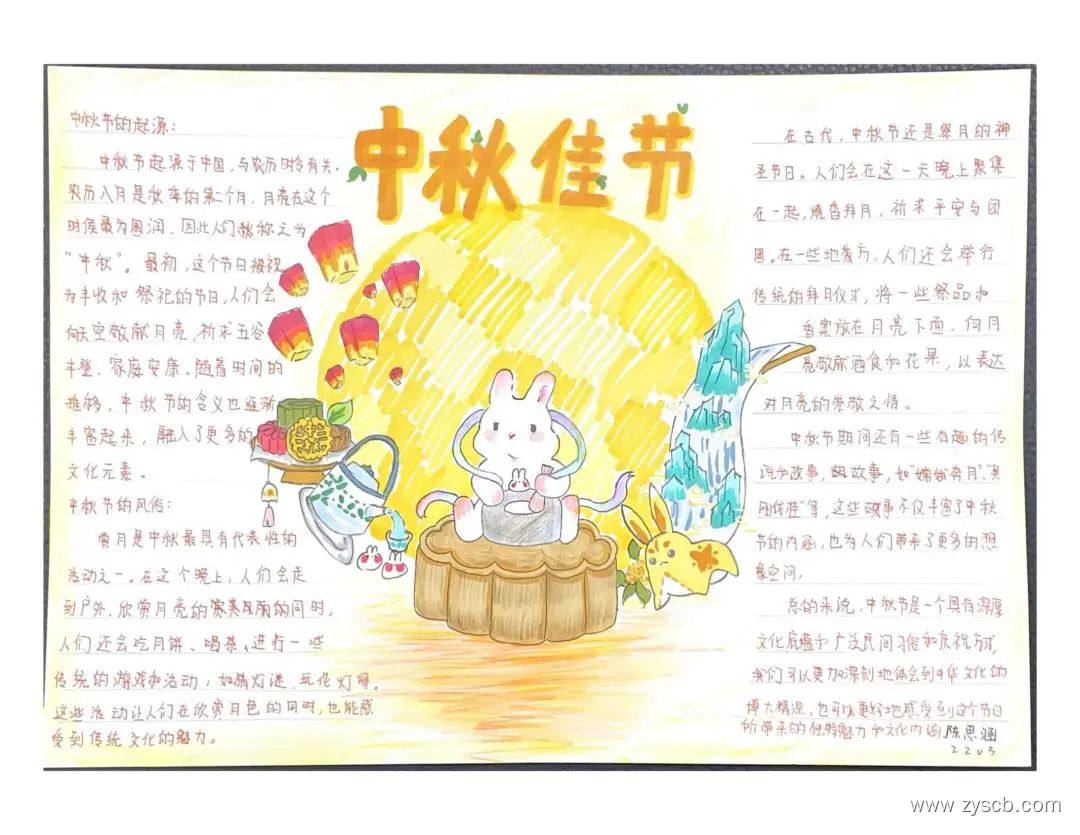 中秋佳节
中秋节的起源：
中秋节起源于中国，与农历时令有关。
农历八月是秋季的第二个月，月亮在这个
时候最为圆润，因此人们就称之为
“中秋”。最初，这个节日被视
为丰收和祭祀的节日，人们会
向天空敬献月亮，祈求五谷
丰登、家庭安康。随着时间的
推移，中秋节的含义也逐渐
丰富起来，融入了更多的
文化元素。
中秋节的风俗：
赏月是中秋最具有代表性的
活动之一。在这个晚上，人们会走
到户外，欣赏月亮的的同时，
人们还会吃月饼、喝茶，进行一些
传统的游戏和活动，如猜灯迷、玩花灯等。
这些活动让人们在欣赏月色的同时，也能感
受到传统文化的魅力。
在古代，中秋节还是祭月的神
圣节日。人们会在这一天晚上聚集
在一起，烧香拜月，祈求平安与团
圆。在一些地方，人们还会举行
传统的拜月仪式，将一些祭品和
香案放在月亮下面，向月
亮敬献酒食和花果，以表达
对月亮的崇敬之情。
中秋节期间还有一些有趣的传
说和故事，故事，如“嫦娥奔月”、“吴
刚伐桂”等，这些故事不仅丰富了中秋
节的内涵，也为人们带来了更多的想
象空间。
总的来说，中秋节是一个具有深厚
文化底蕴和广泛民间习俗和庆祝方式，
我们可以更加深刻地体会到中华文化的
博大精深，也可以更好地感受到这个节日
所带来的独特魅力和文化内涵
陈思涵
2203
www.zyscb.com